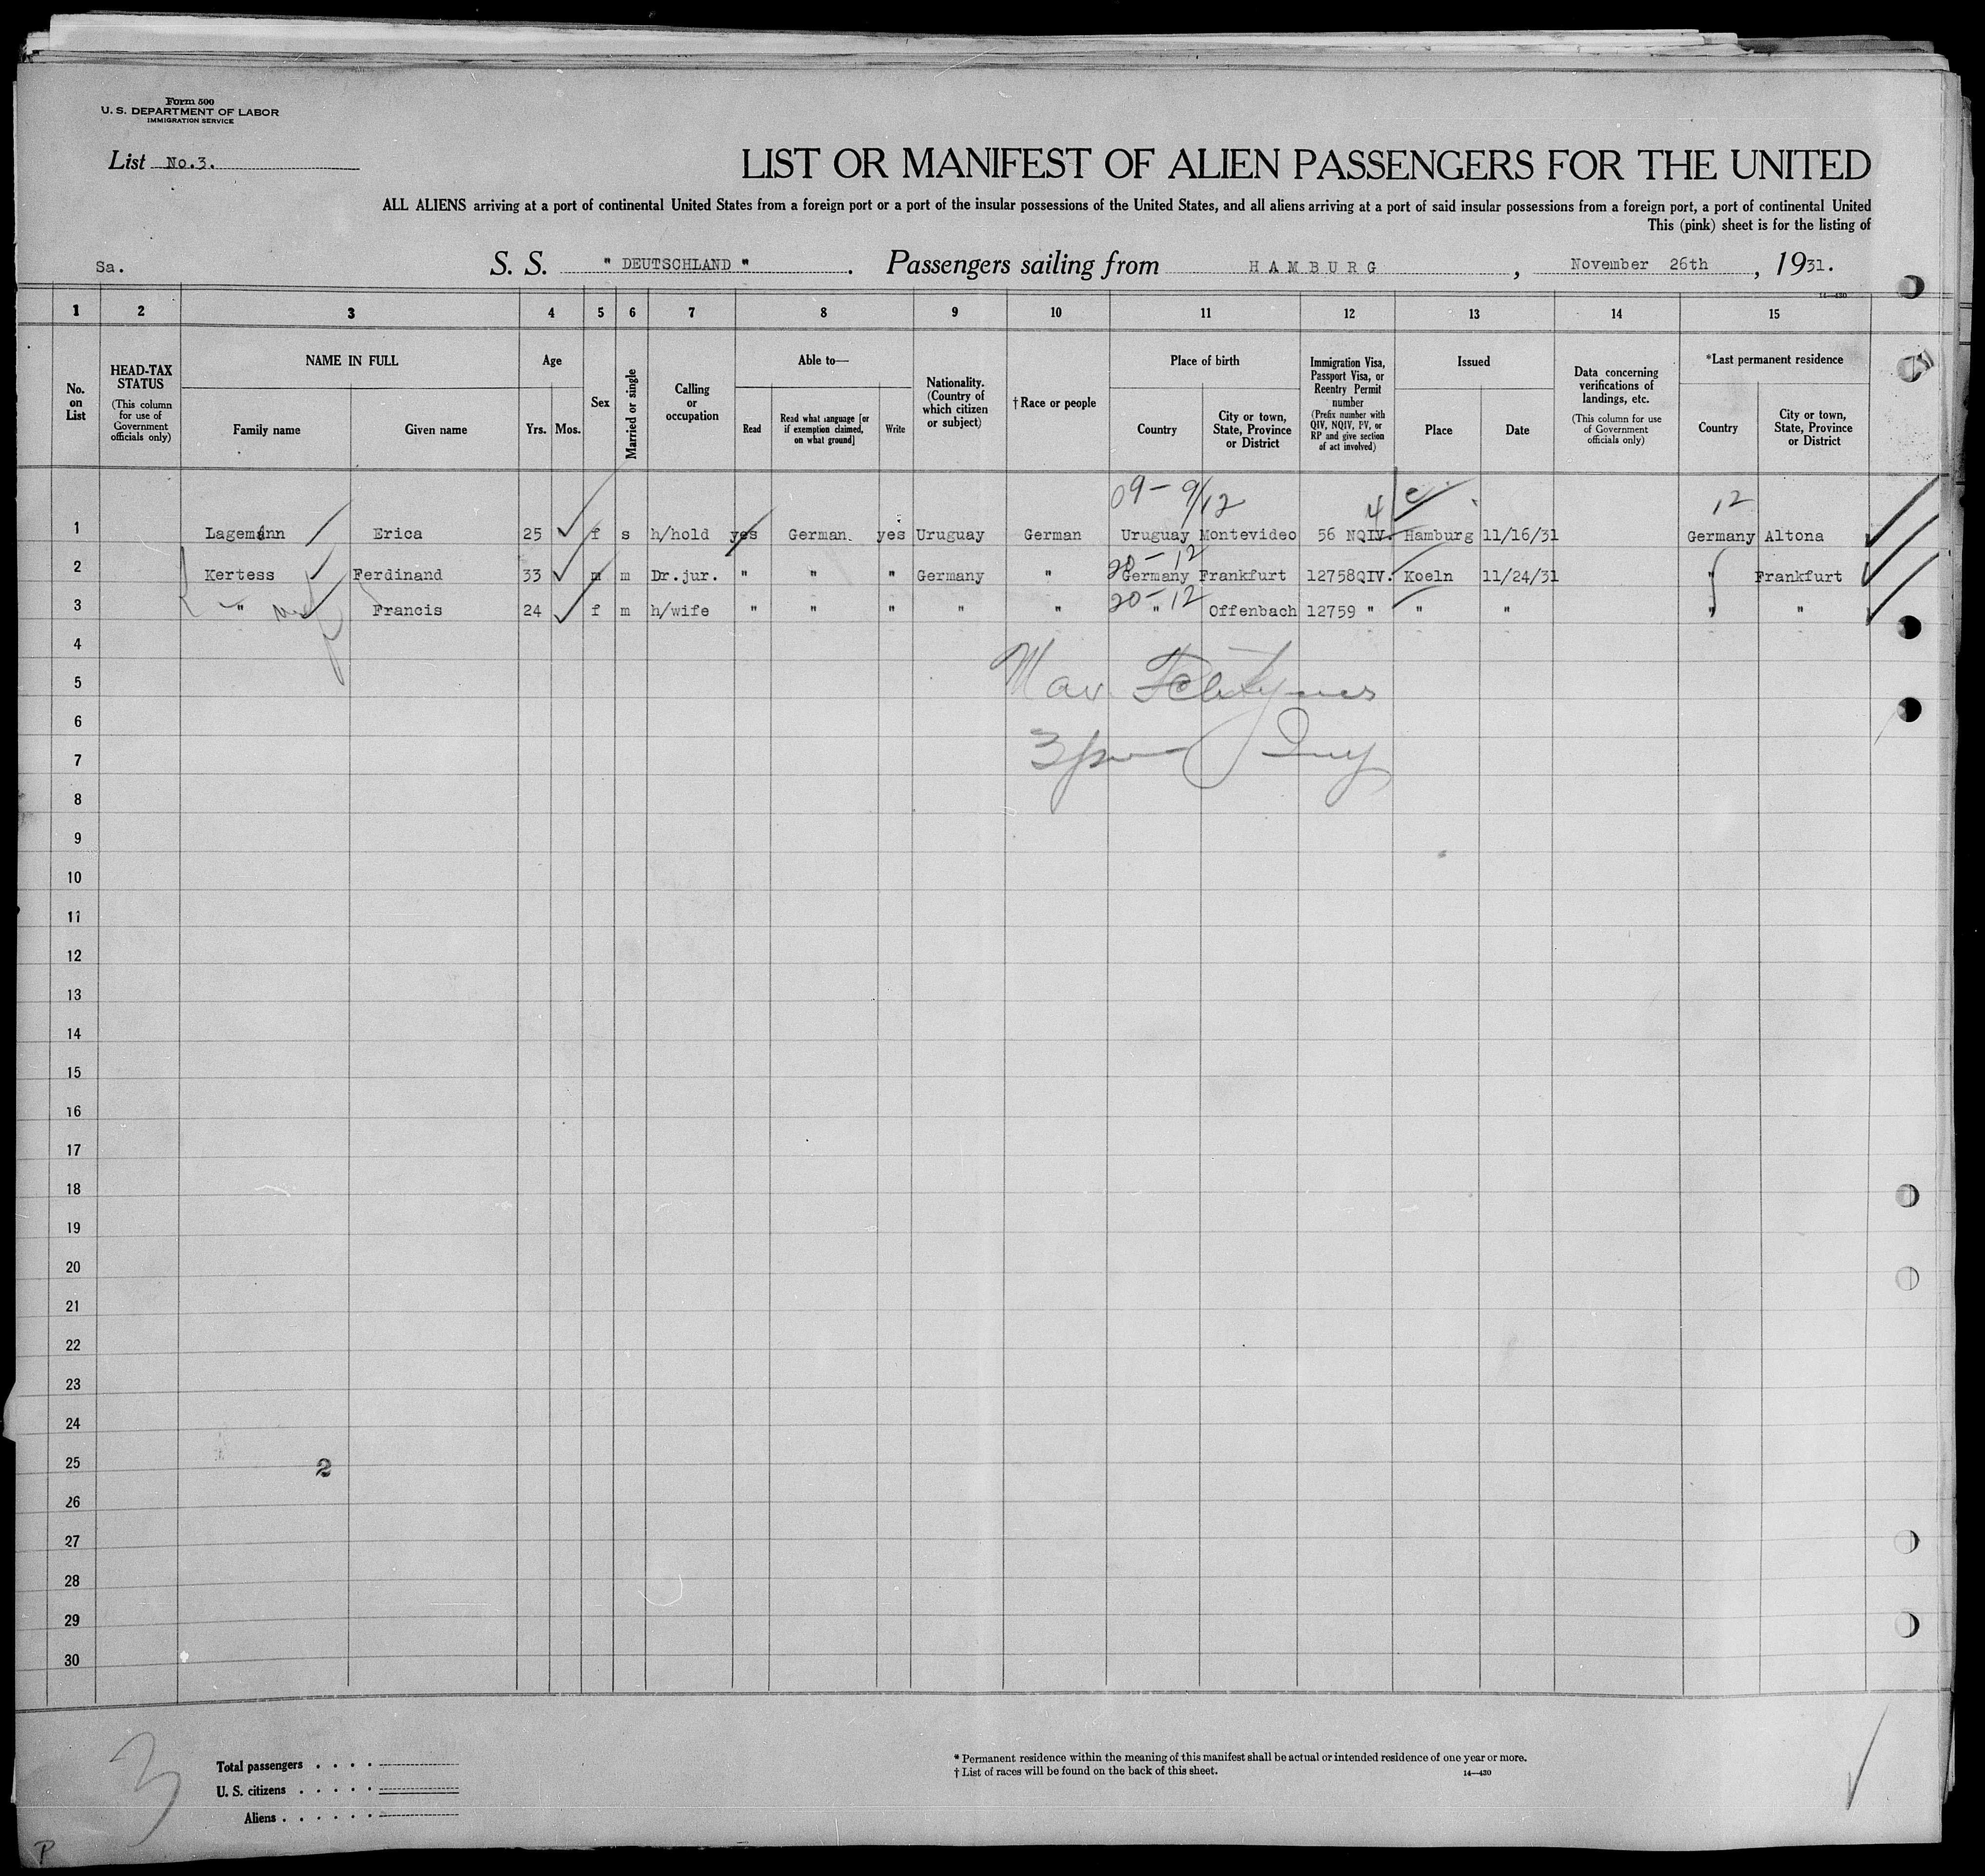 Form 500
U. S. DEPARTMENT OF LABOR
IMMIGRATION SERVICE
List No.3.
LIST OR MANIFEST OF ALIEN PASSENGERS FOR THE UNITED
ALL ALIENS arriving at a port of continental United States from a foreign port or a port of the insular possessions of the United States, and all aliens arriving at a port of said insular possessions from a foreign port, a port of continental United
This (pink) sheet is for the listing of
Sa. S. S. " DEUTSCHLAND " . Passengers sailing from HAMBURG , November 26th , 1931.
14—430
1 2 3 4 5 6 7 8 9 10 11 12 13 14 15
No. on List
HEAD-TAX STATUS (This column for use of Government officials only)
NAME IN FULL
Family name Given name
Age
Yrs. Mos.
Sex
Married or single
Calling or occupation
Able to—
Read Read what language [or if exemption claimed, on what ground] Write
Nationality. (Country of which citizen or subject)
†Race or people
Place of birth
Country City or town, State, Province or District
Immigration Visa, Passport Visa, or Reentry Permit number (Prefix number with QIV, NQIV, PV, or RP and give section of act involved)
Issued
Place Date
Data concerning verifications of landings, etc. (This column for use of Government officials only)
*Last permanent residence
Country City or town, State, Province or District
09 - 9/12 4 c 12
1 Lagemann Erica 25 f s h/hold yes German. yes Uruguay German Uruguay Montevideo 56 NQIV. Hamburg 11/16/31 Germany Altona
20-12
2 Kertess Ferdinand 33 m m Dr.jur. " " " Germany " Germany Frankfurt 12758QIV. Koeln 11/24/31 " Frankfurt
20-12
3 " Francis 24 f m h/wife " " " " " " Offenbach 12759 " " " " "
4
5
6
7
8
9
10
11
12
13
14
15
16
17
18
19
20
21
22
23
24
25 2
26
27
28
29
30
3
Total passengers . . . .
U. S. citizens . . . . .
Aliens . . . . . .
* Permanent residence within the meaning of this manifest shall be actual or intended residence of one year or more.
† List of races will be found on the back of this sheet. 14—430
P